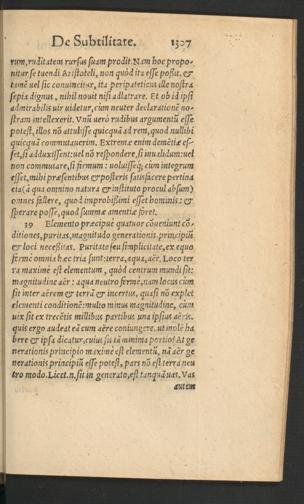 De Subtilitate. 1307
rum, ruditatem rursus suam prodit. Nam hoc propo-
nitur se tuendi Aristoteli, non quòd ita esse possit, &
tamē uel sic conuincitur, ita peripateticus ille nostra
sępis dignus, nihil nouit nisi adlatrare. Et ob id ipse
admirabilis uir uidetur, cùm neuter declarationē no-
stram intellexerit. Vnū uerò rudibus argumentū esse
potest, illos nō attulisse quicquā ad rem, quod nullibi
quicquā commutauerim. Extremæ enim demētiæ es-
set, si adduxissent: uel nō respondere, si inualidum: uel
non commutare, si firmum: uoluissęq́, cùm integrum
esset, mihi præsentibus & posteris satisfacere pertina
cia (à qua omnino natura & instituto procul absum)
omnes fallere, quod improbissimi esset hominis: &
sperare posse, quod summæ amentiæ foret.
19 Elemento præcipuè quatuor cōueniunt cō-
ditiones, puritas, magnitudo generationis, principiū
& loci necessitas. Puritate seu simplicitate, ex equo
fermè omnis hæc tria sunt: terra, aqua, aër. Loco ter
ra maximè est elementum, quòd centrum mundi sit:
magnitudine aër: aqua neutro fermè, nam locus cum
sit inter aërem & terrā & incertus, quasi nō explet
elementi conditionē: multo minus magnitudine, cùm
uix sit ex trecētis millibus partibus una ipsius aëris.
quis ergo audeat eā cum aëre coniungere, ut molē ha
bere & ipsa dicatur, cuius sit tā minima portio? At ge
nerationis principio maximè est elementū, nā aër ge
nerationis principiū esse potest, pars nō est terra neu
tro modo. Licet.n. sit in generato, est tanquā uas. Vas
autem